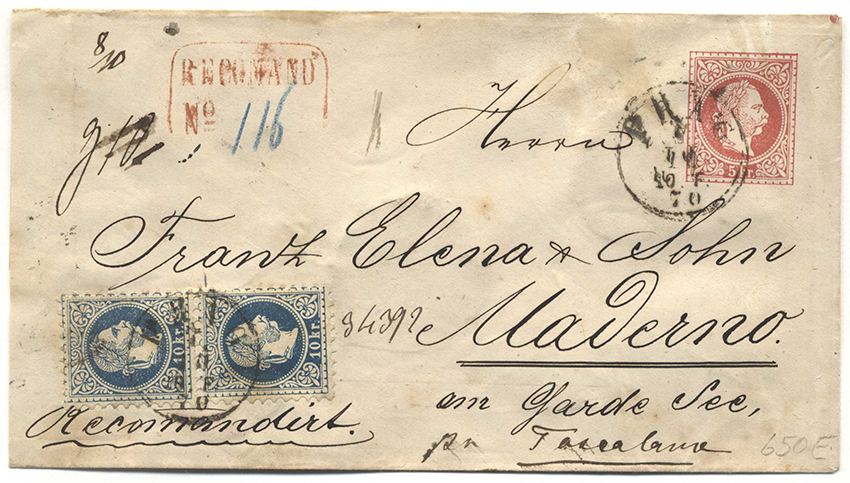 8/10
RECOMAND
No 116
Herrn
Franz Elena & Sohn
Maderno.
am Garde See,
pr Toscolano
Recomandirt.
34392
10 kr.
10 kr.
5
PRAG
70
650E